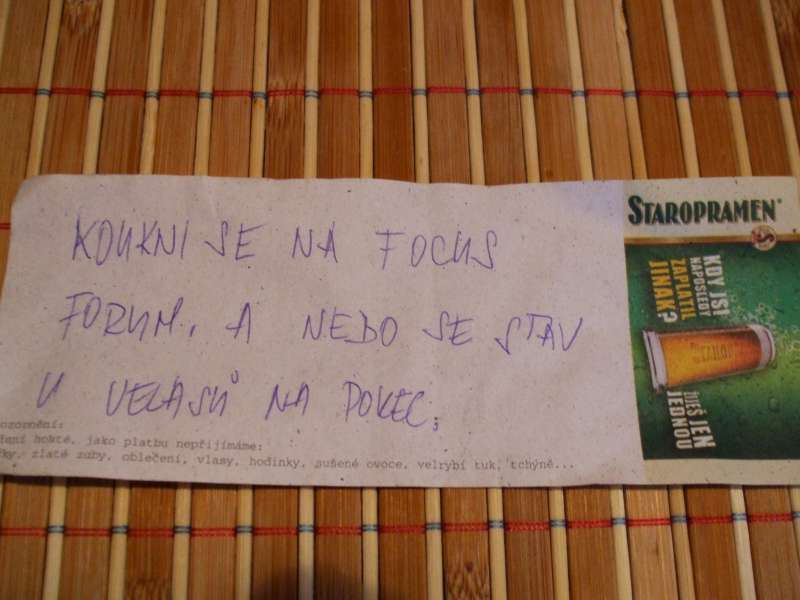 KOUKNI SE NA FOCUS
FORUM, A NEBO SE STAV
U VELASŮ NA POKEC,
ozornění:
hokté, jako platbu nepřijímáme:
ky, zlaté zuby, oblečení, vlasy, hodinky, sušené ovoce, velrybí tuk, tchýně...
STAROPRAMEN
KDY JSI
NAPOSLEDY
ZAPLATIL
JINAK?
ŽIJEŠ JEN
JEDNOU